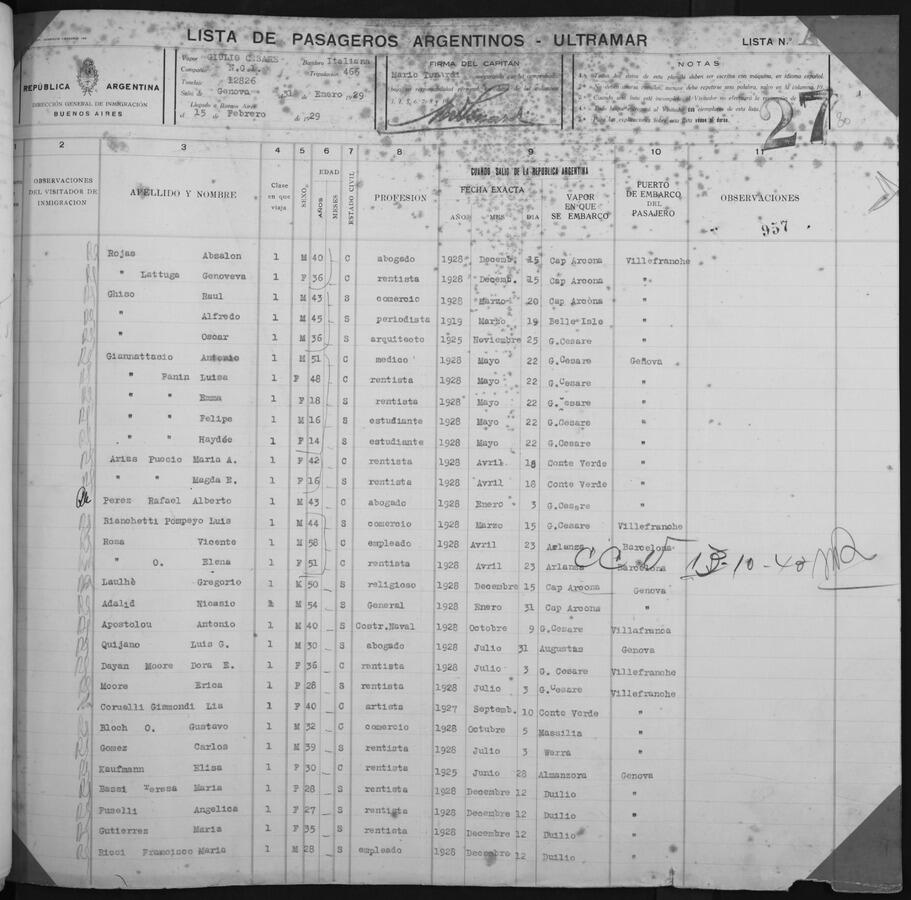 LISTA DE PASAGEROS ARGENTINOS - ULTRAMAR
LISTA N.° A
REPÚBLICA ARGENTINA
DIRECCIÓN GENERAL DE INMIGRACIÓN
BUENOS AIRES
Vapor GIULIO CESARE Bandera Italiana
Compañia N.G.I. Tripulación 466
Tonelaje 12826
Salió de Genova el 31 de Enero 29
Llegado a Buenos Aires
el 15 de Febrero de 1929
FIRMA DEL CAPITÁN
NOTAS
27
2 3 4 5 6 7 8 9 10 11
OBSERVACIONES DEL VISITADOR DE INMIGRACION
APELLIDO Y NOMBRE
Clase en que viaja
SEXO
EDAD
AÑOS
MESES
ESTADO CIVIL
PROFESION
CUANDO SALIO DE LA REPUBLICA ARGENTINA
FECHA EXACTA
AÑO MES DIA
VAPOR EN QUE SE EMBARCO
PUERTO DE EMBARCO DEL PASAJERO
OBSERVACIONES
957
Rojas Absalon 1 M 40 C abogado 1928 Decemb. 15 Cap Arcona Villefranche
" Lattuga Genoveva 1 F 36 C rentista 1928 Decemb. 15 Cap Arcona "
Ghiso Raul 1 M 43 S comercio 1928 Marzo 20 Cap Arcona "
" Alfredo 1 M 45 S periodista 1919 Marzo 19 Belle Isle "
" Oscar 1 M 36 S arquitecto 1925 Noviembre 25 G.Cesare "
Giannattasio Antonio 1 M 51 C medico 1928 Mayo 22 G.Cesare Genova
" Fanin Luisa 1 F 48 C rentista 1928 Mayo 22 G.Cesare "
" " Emma 1 F 18 S rentista 1928 Mayo 22 G.Cesare "
" " Felipe 1 M 16 S estudiante 1928 Mayo 22 G.Cesare "
" " Haydée 1 F 14 S estudiante 1928 Mayo 22 G.Cesare "
Arias Puccio Maria A. 1 F 42 C rentista 1928 Avril 18 Conte Verde "
" " Magda E. 1 F 16 S rentista 1928 Avril 18 Conte Verde "
Perez Rafael Alberto 1 M 43 C abogado 1928 Enero 3 G.Cesare "
Bianchetti Pompeyo Luis 1 M 44 S comercio 1928 Marzo 15 G.Cesare Villefranche
Rosa Vicente 1 M 58 C empleado 1928 Avril 23 Arlanza Barcelona
" O. Elena 1 F 51 C rentista 1928 Avril 23 Arlanza Barcelona
Laulhè Gregorio 1 M 50 S religioso 1928 Decembre 15 Cap Arcona Genova
Adalid Nicasio 1 M 54 S General 1928 Enero 31 Cap Arcona "
Apostolou Antonio 1 M 40 S Costr.Naval 1928 Octobre 9 G.Cesare Villafranca
Quijano Luis G. 1 M 30 S abogado 1928 Julio 31 Augustas Genova
Dayan Moore Dora E. 1 F 36 C rentista 1928 Julio 3 G. Cesare Villefranche
Moore Erica 1 F 28 S rentista 1928 Julio 3 G.Cesare Villefranche
Coruelli Gismondi Lia 1 F 40 C artista 1927 Septemb. 10 Conte Verde "
Bloch O. Gustavo 1 M 32 C comercio 1928 Octubre 5 Massilia "
Gomez Carlos 1 M 39 S rentista 1928 Julio 3 Werra "
Kaufmann Elisa 1 F 30 C rentista 1925 Junio 28 Almanzora Genova
Bassi Teresa Maria 1 F 28 S rentista 1928 Decembre 12 Duilio "
Fuselli Angelica 1 F 27 S rentista 1928 Decembre 12 Duilio "
Gutierrez Maria 1 F 35 S rentista 1928 Decembre 12 Duilio "
Ricci Francisco Maria 1 M 28 S empleado 1928 Decembre 12 Duilio "